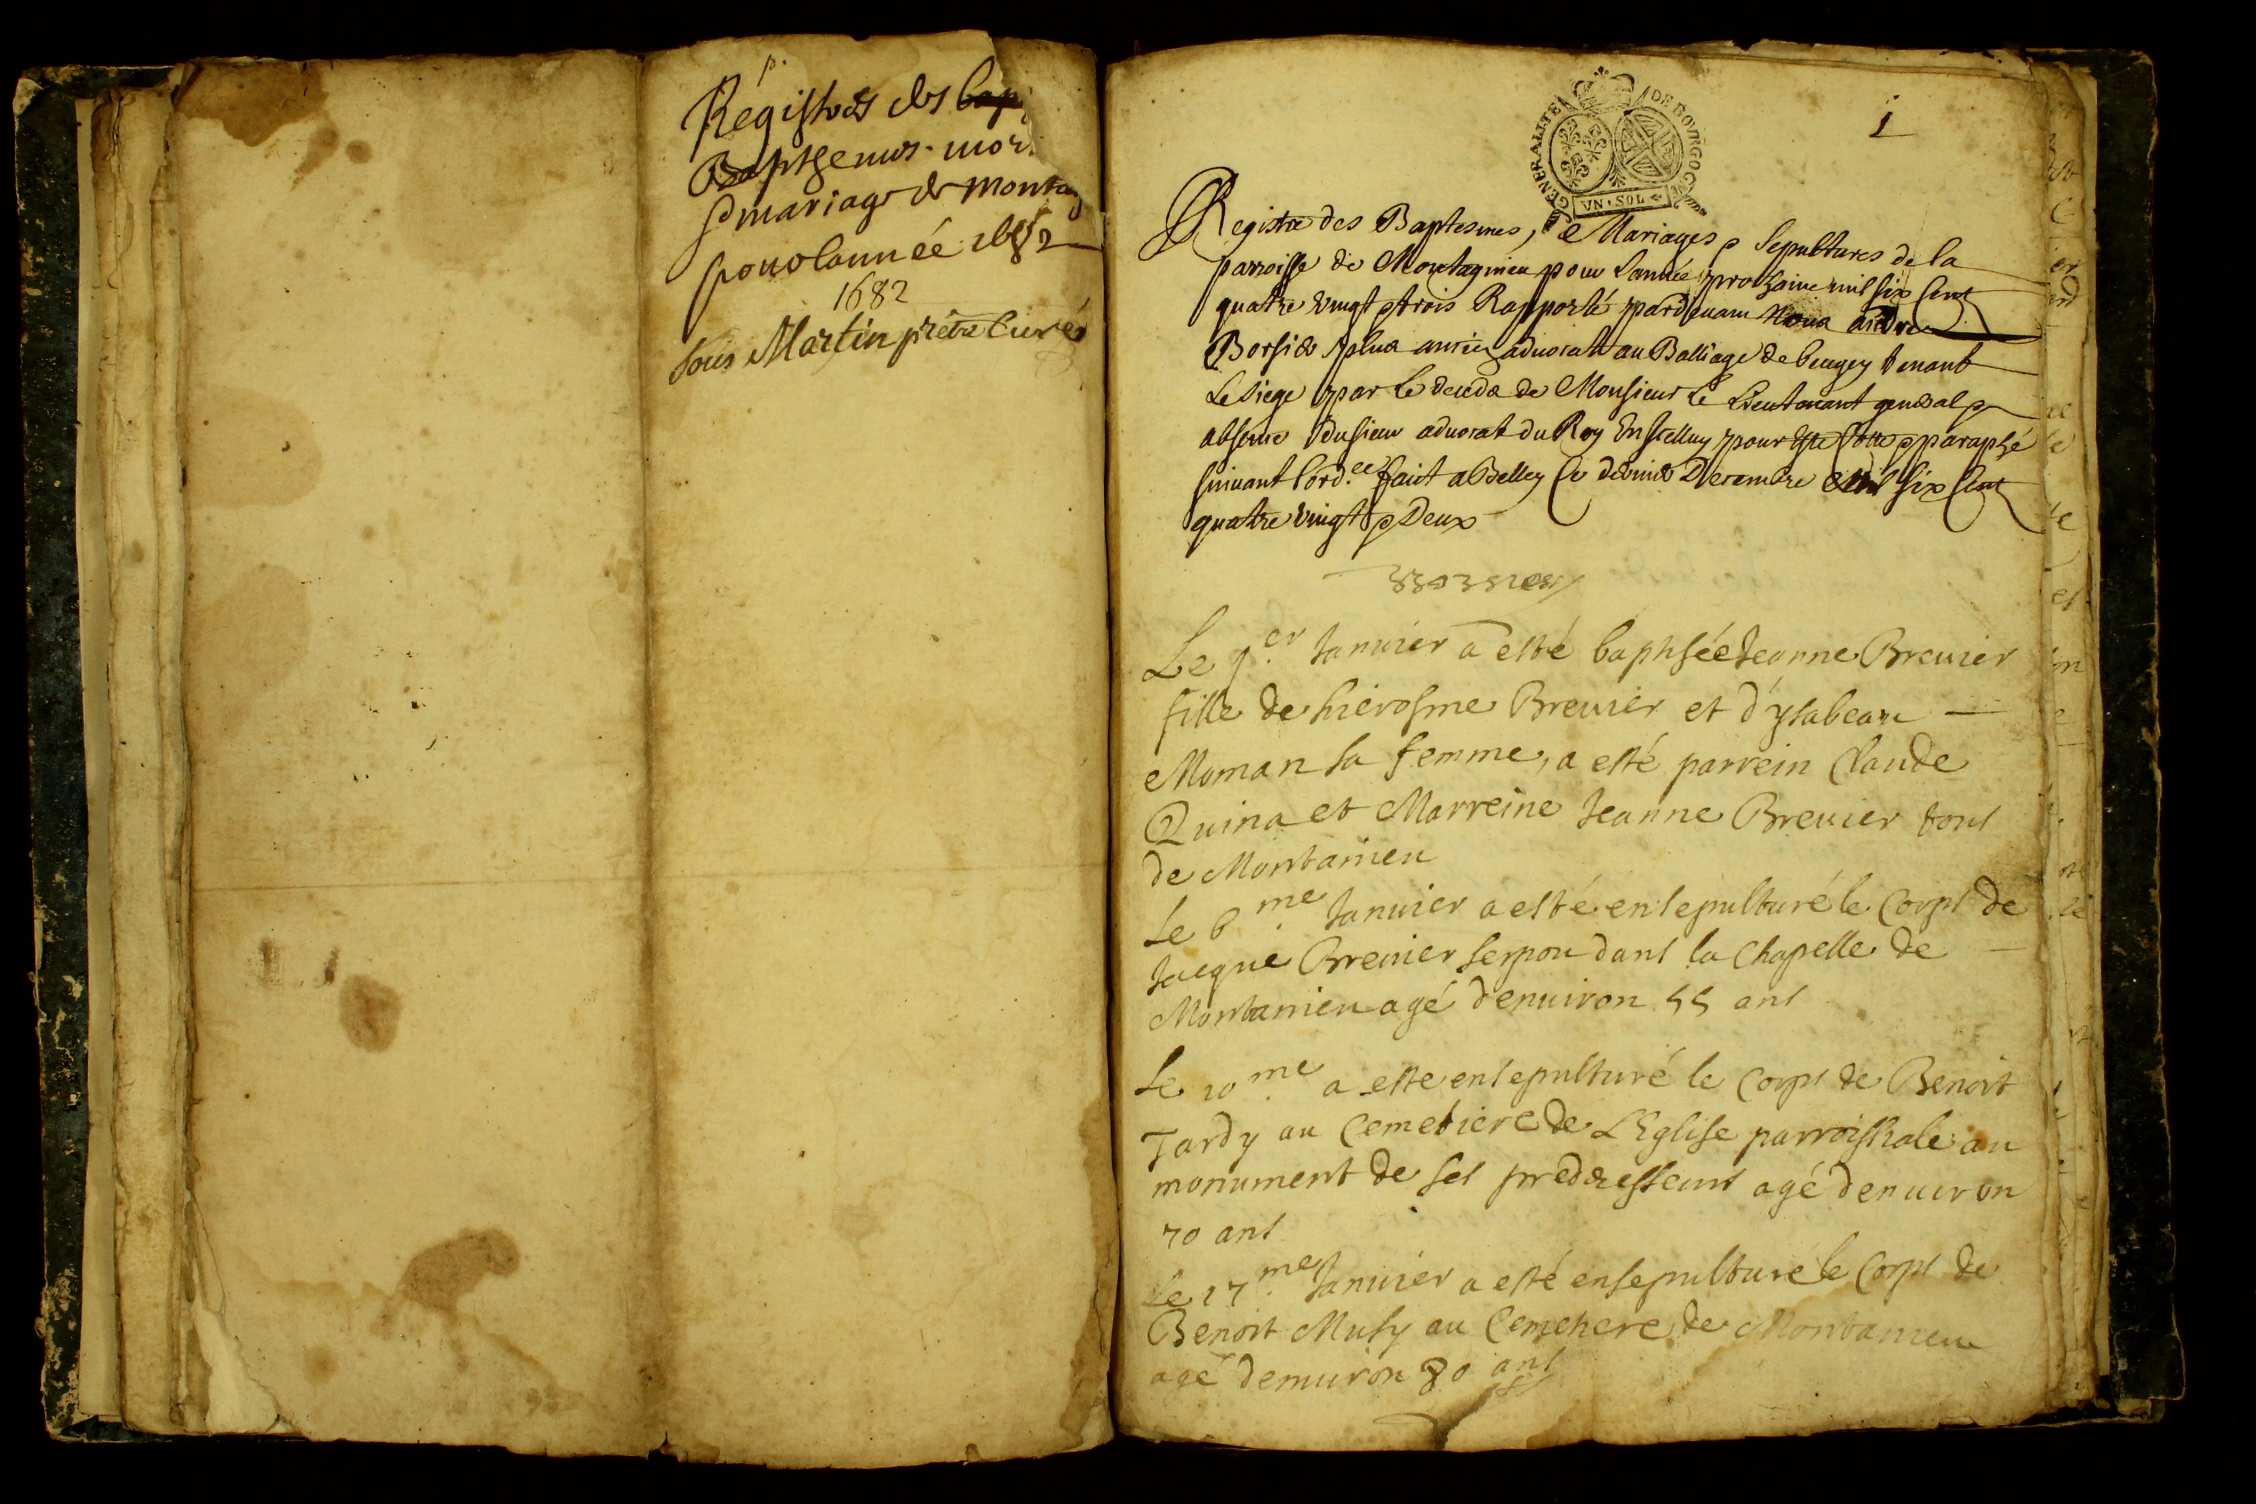 p.
Registres des bap
Baptsemes mor
& mariage de montag
pour lannéé 1682
1682
sous Martin prêtre Curé
GENERALITE DE BOVRGOGNE
VN SOL
1
Registre des Baptesmes, Mariages & Sepultures de la
parroisse de Montagnieu pour Lannée prochaine mil six Cent
quatre vingt & trois Rapporté pardeuant Nous
plus antien aduocat au Balliage de beugey tenant
Le Siege par le deceds de Monsieur le Lieutenant general &
absence du sieur aduocat du Roy pour estre Cotte & paraphé
suiuant l'ord.ce faict a Belley Ce dernier Decembre mil six Cent
quatre vingt & Deux
Le 1.er Januier a esté baptisée Jeanne Breuier
fille de hierosme Breuier et d'ysabeau
Moman sa femme, a esté parrein Claude
Quina et Marreine Jeanne Breuier tous
de Montanieu
Le 6.me Januier a esté ensepulturé le Corps de
Jacque Breuier serpou dans la Chapelle de
Montanieu agé denuiron 55 ans
Le 10.me a esté ensepulturé le Corps de Benoit
Tardy au Cemetiere de L'Eglise parroissiale au
monument de ses predecesseurs agé denuiron
70 ans
Le 17.me Januier a esté ensepulturé le Corps de
Benoit Musy au Cemetiere de Montanieu
agé denuiron 80 ans